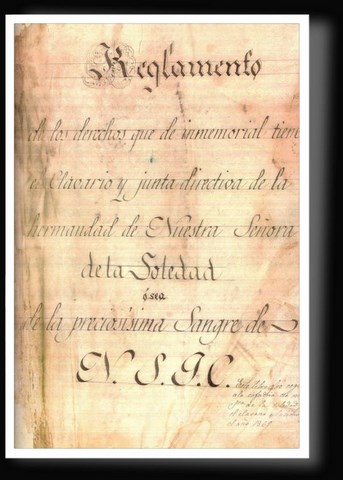 Reglamento
de los derechos que de inmemorial tien
el Clavario y junta directiva de la
hermandad de Nuestra Señora
de la Soledad
ósea
de la preciosisima Sangre de
N. S. J. C.
el año